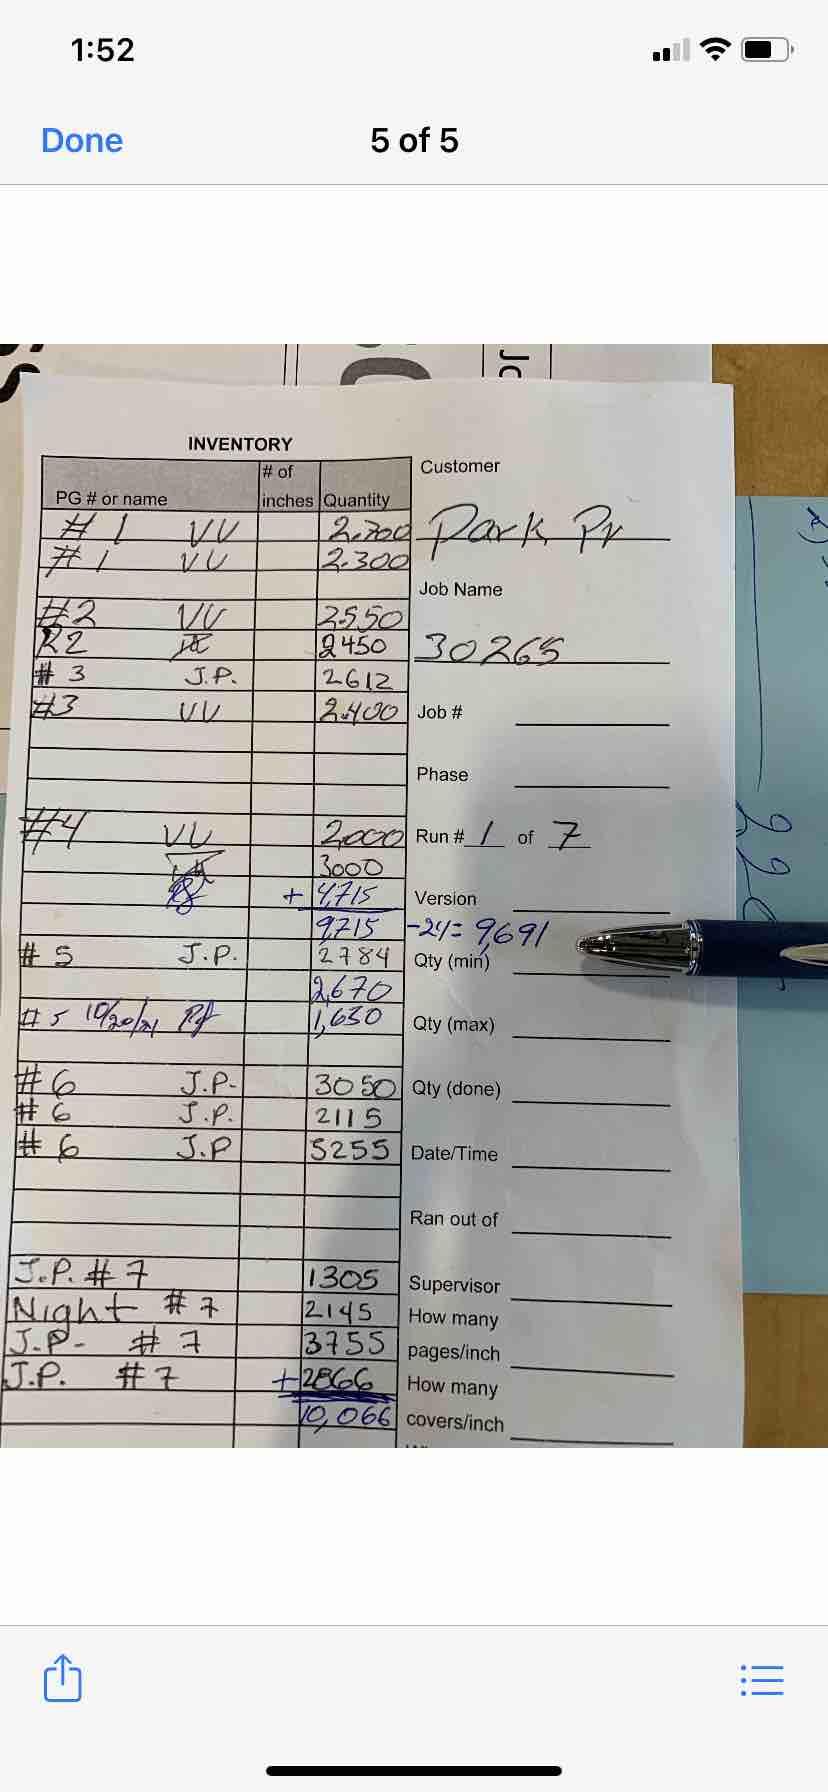 1:52
Done
5 of 5
Jo
INVENTORY
PG # or name # of inches Quantity
#1 VV 2.700
#1 VV 2.300
#2 VV 2550
R2 2450
#3 J.P. 2612
#3 VV 2.400
#4 VV 2000
3000
+ 4,715
9,715 -24= 9,691
#5 J.P. 2784
2,670
#5 10/20/21 1,630
#6 J.P. 3050
#6 J.P. 2115
#6 J.P 5255
J.P. #7 1305
Night #7 2145
J.P- #7 3755
J.P. #7 +2866
10,066
Customer
Park Pr
Job Name
30265
Job #
Phase
Run # 1 of 7
Version
Qty (min)
Qty (max)
Qty (done)
Date/Time
Ran out of
Supervisor
How many
pages/inch
How many
covers/inch